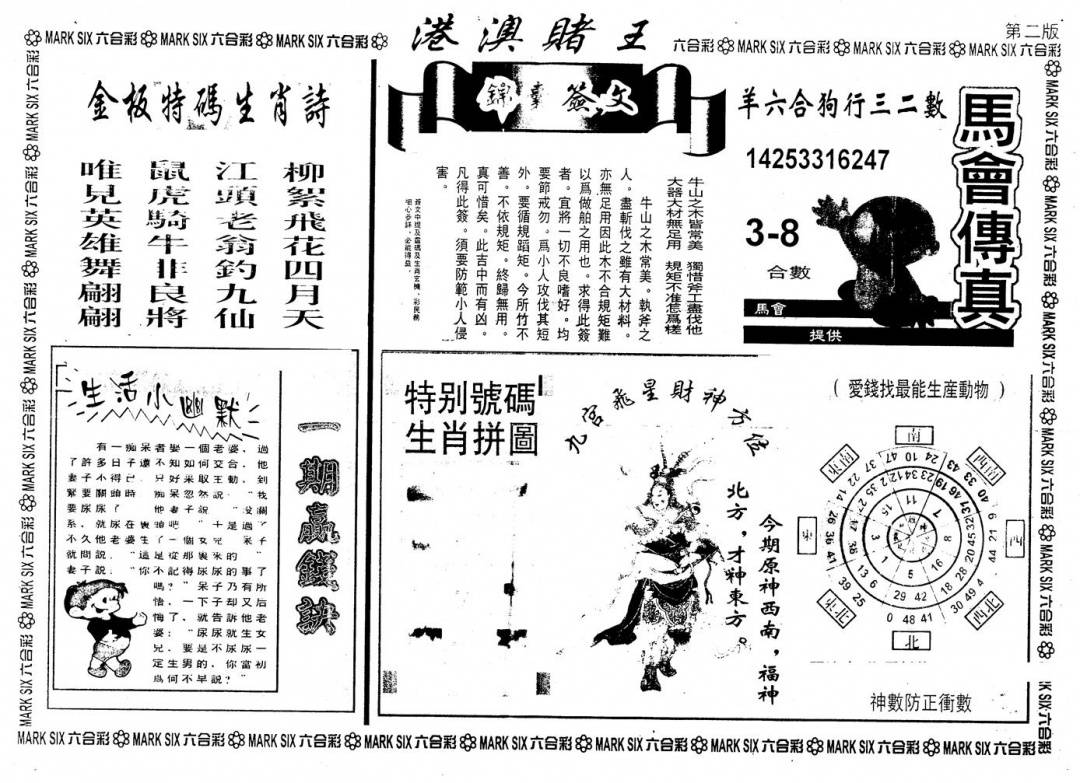 港澳賭王
第二版
MARK SIX 六合彩 MARK SIX 六合彩 MARK SIX 六合彩
六合彩 MARK SIX 六合彩 MARK SIX 六合彩 MARK SIX 六合彩
金板特碼生肖詩
柳絮飛花四月天
江頭老翁釣九仙
鼠虎騎牛非良將
唯見英雄舞翩翩
錦囊簽文
牛山之木皆常美 獨惜斧工盡伐他
大器大材無足用 規矩不准怎爲樣
牛山之木常美。執斧之
人。盡斬伐之雖有大材料。
亦無足用因此木不合規矩難
以爲做船之用也。求得此簽
者。宜將一切不良嗜好。均
要節戒勿。爲小人攻伐其短
外。要循規蹈矩。今所竹不
善。不依規矩。終歸無用。
真可惜矣。此吉中而有凶。
凡得此簽。須要防範小人侵
害。
簽文中提及靈碼及生肖玄機、彩民務
細心參詳、必能得益。
羊六合狗行三二數
14253316247
3-8
合數
馬會
提供
馬會傳真
生活小幽默
有一痴呆者娶一個老婆，過
了許多日子還不知如何交合，他
妻子不得已，只好采取主動，到
緊要關頭時，痴呆忽然說："我
要尿尿了" 他妻子說："没關
系，就尿在裏頭吧"十是過了
不久他老婆生了一個女兒 呆子
就問說："這是從那裏來的"
妻子說："你不記得尿尿的事了
嗎？"呆子乃有所
悟，一下子却又后
悔了，就告訴他老
婆："尿尿就生女
兒，要是不尿尿一
定生男的，你當初
爲何不早說？"
一期贏錢訣
特别號碼
生肖拼圖
九宮飛星財神方位
今期原神西南，福神
北方，才神東方。
（愛錢找最能生産動物）
南
東南
西南
東
西
東北
西北
北
神數防正衝數
MARK SIX 六合彩 MARK SIX 六合彩 MARK SIX 六合彩 MARK SIX 六合彩 MARK SIX 六合彩 MARK SIX 六合彩 MARK SIX 六合彩 MARK SIX 六合彩 MARK SIX 六合彩